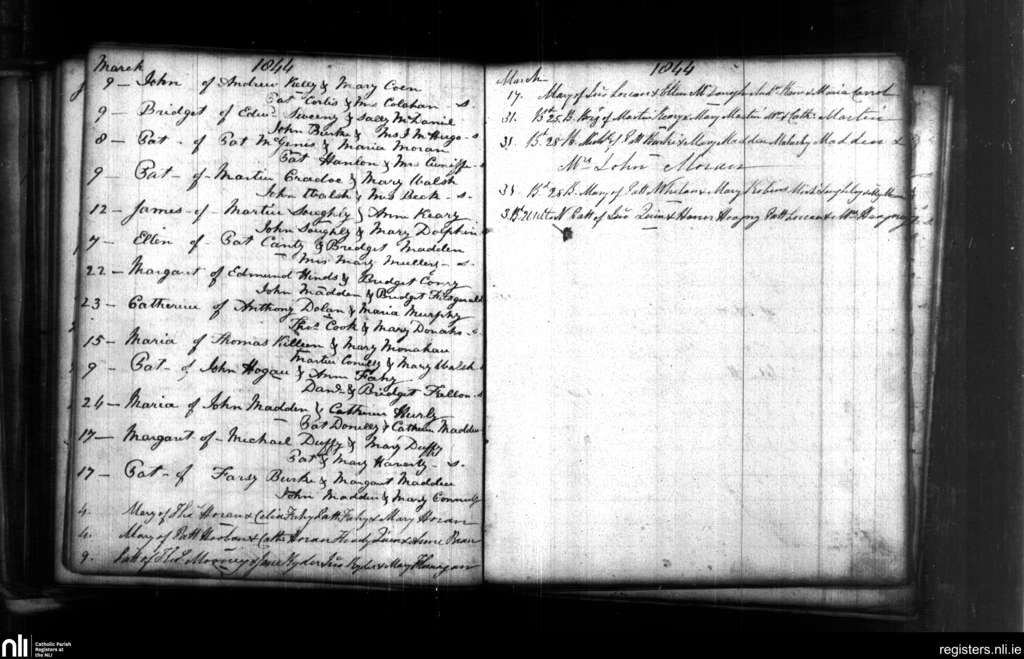 March 1844
9 - John of Andrew Kelly & Mary Coen
Pat Curtis & Mrs Colahan - s.
9 - Bridget of Edwd Sweeny & Sally McDaniel
John Burke & Mrs J McHugo - s
8 - Pat - of Pat McGenis & Maria Moran
Pat Hanlon & Mrs Cunniffe - s
9 - Pat - of Martin Cradoc & Mary Walsh
John Walsh & Mrs Beck - s.
12 - James - of Martin Loughly & Ann Keary
John Loughly & Mary Dolphin
7 - Ellen of - Pat Canty & Bredget Madden
Mrs Mary Mullery - s.
22 - Margaret of Edmund Hinds & Bridget Conry
John Madden & Bridget Fitzgerald
23 - Catherine of Anthony Dolan & Maria Murphy
Thos Cook & Mary Donaho - s.
15 - Maria of Thomas Killeen & Mary Monahan
Martin Connolly & Mary Walsh
9 - Pat - of John Hogan & Ann Fahy
Danl & Bridget Fallon - s
24 - Maria of John Madden & Catherine Hurly
Pat Donelly & Catherine Madden
17 - Margaret of - Michael Duffy & Mary Duffy
Pat & Mary Haverty - s.
17 - Pat - of Farsy Burke & Margaret Madden
John Madden & Mary Connolly
4. Mary of Thos Horan & Celia Fahy Patt Fahy & Mary Horan
4. Mary of Patt Hoban & Cathe Horan Thady Quin & Anne
9. Patt of Thos Mooney & Jane Ryder Jas Ryder & Mary Flanagan
March 1844
17. Mary of Jas Lorcan & Ellen McDonagh & Maria Carrol
31. Bt 25 B. of Martin & Mary Martin & Cathe Martin
31. Bt 28 of Patt & Mary Madden Malachy Madden &
Mrs John Moran
31. Bt 28 B. Mary of Patt Whelan & Mary
31. Bt N. Patt of Jas Quin & Honor Patt Lorcan &
nli
Catholic Parish
Registers at
the NLI
registers.nli.ie